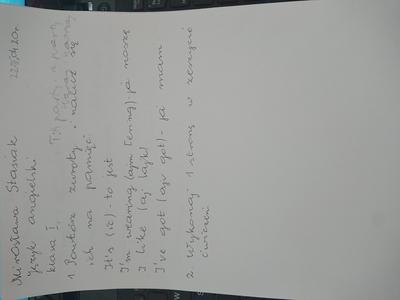 Mirosława Stasiak 22.04.20r
język angielski
klasa I
1 Powtórz zwroty i naucz się
ich na pamięć.
It's (ic) - to jest
I'm wearing (ajm łering) - ja noszę
I like (aj lajk)
I've got (ajv got) - ja mam
2 Wykonaj 1 stronę w zeszycie
ćwiczeń